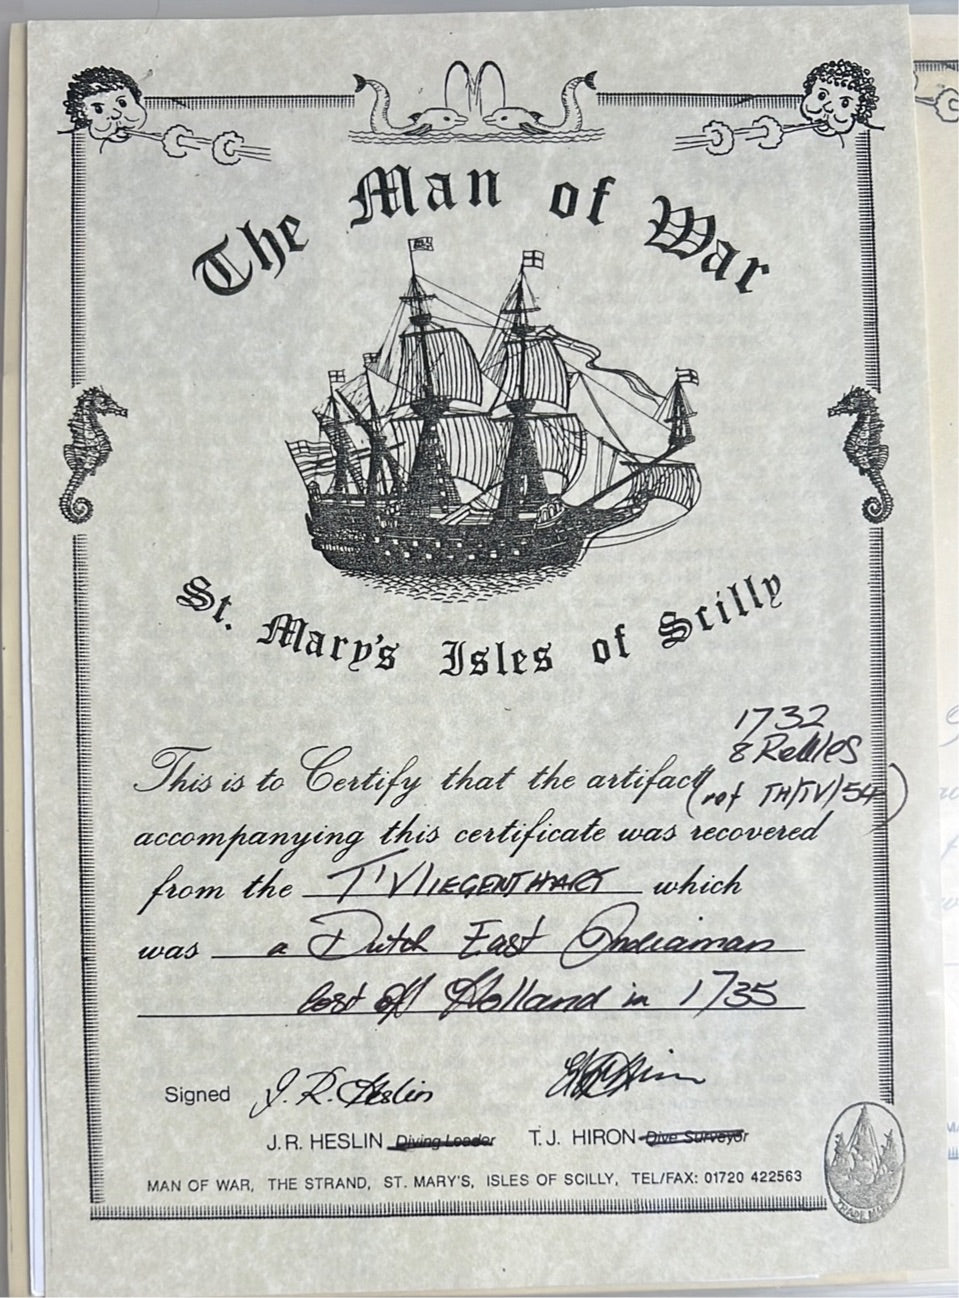 The Man of War
St. Mary's Isles of Scilly
1732
8 Reales
This is to Certify that the artifact (ref TH/TV/54)
accompanying this certificate was recovered
from the T'VliegentHART which
was a Dutch East Indiaman
lost off Holland in 1735
Signed J.R. Heslin
J.R. HESLIN Diving Leader T.J. HIRON Dive Surveyor
MAN OF WAR, THE STRAND, ST. MARY'S, ISLES OF SCILLY, TEL/FAX: 01720 422563
TRADE MARK